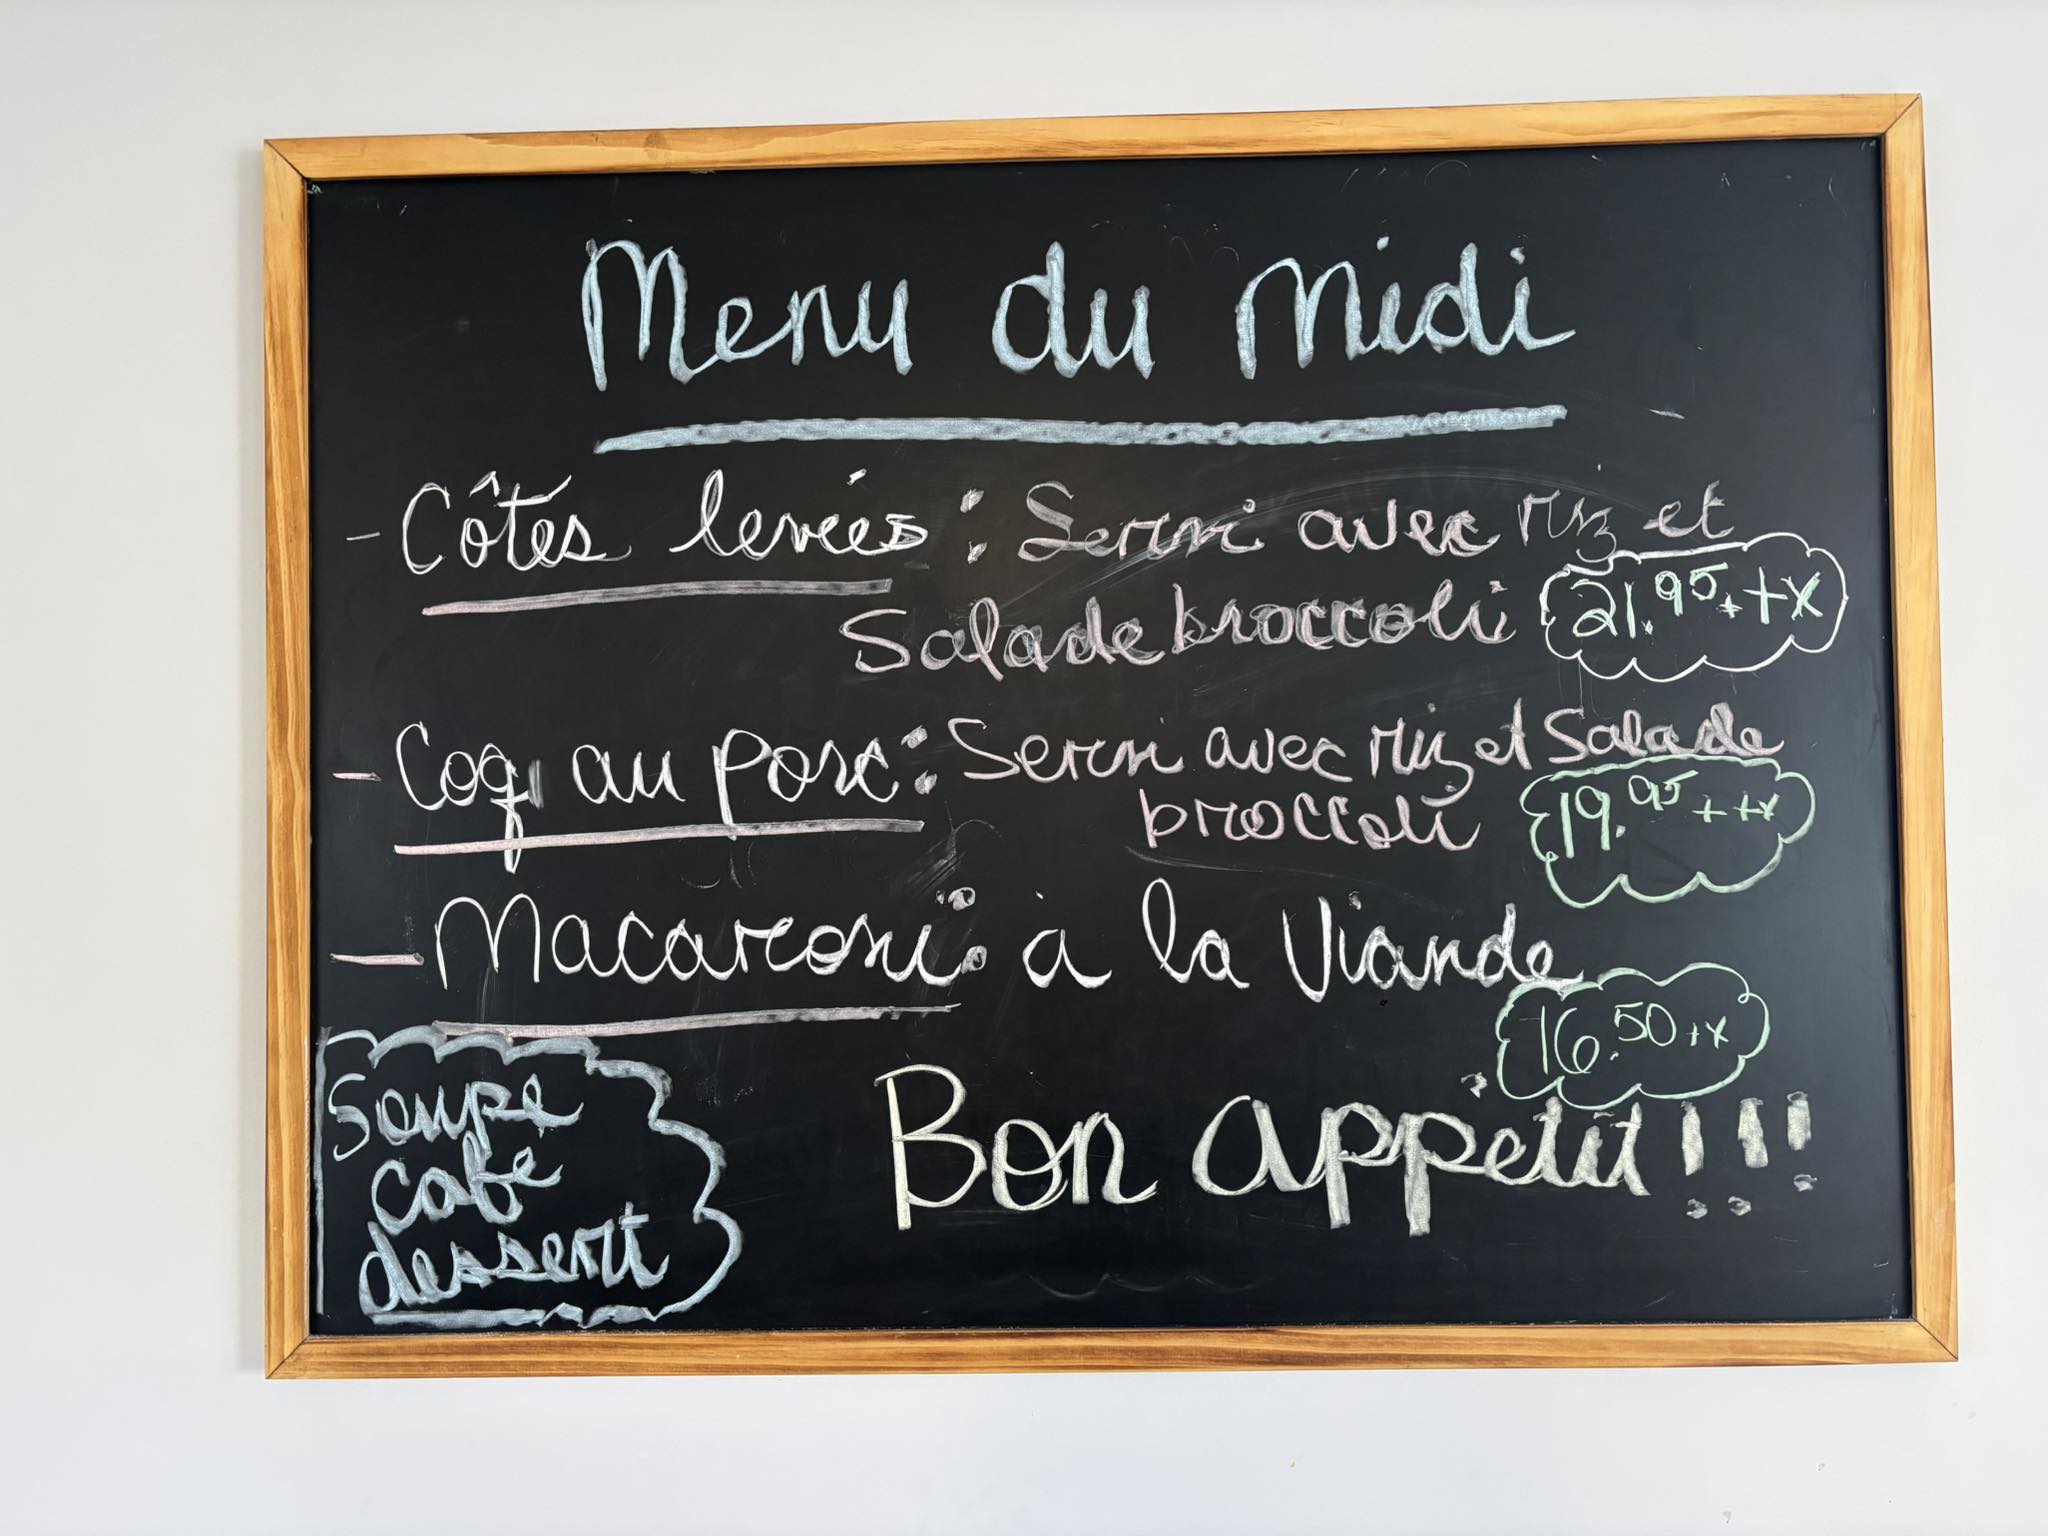 Menu du midi
- Côtes levées : Servi avec riz et
Salade broccoli 21.95 + tx
- Coq au porc : Servi avec riz et Salade
broccoli 19.95 + tx
- Macaroni : à la Viande
16.50 + tx
Soupe
café
dessert
Bon appétit !!!